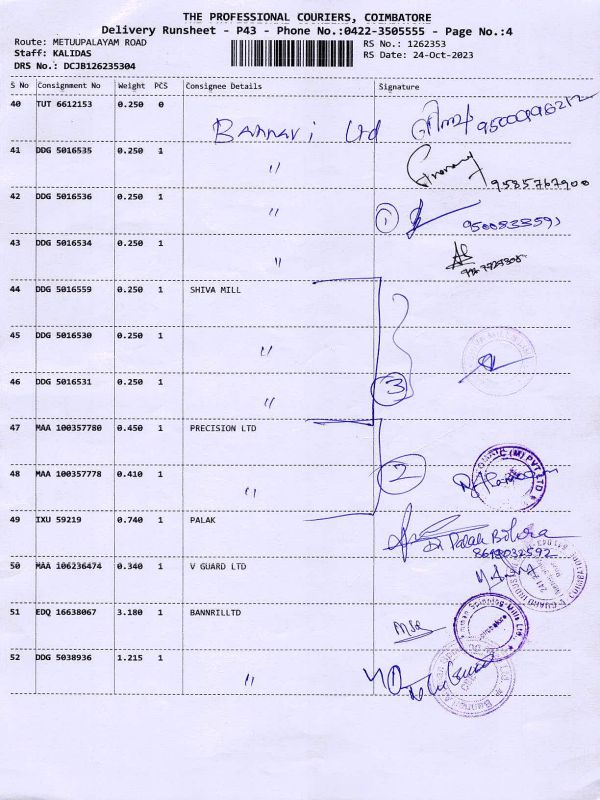 THE PROFESSIONAL COURIERS, COIMBATORE
Delivery Runsheet - P43 - Phone No.:0422-3505555 - Page No.:4
Route: METUUPALAYAM ROAD RS No.: 1262353
Staff: KALIDAS RS Date: 24-Oct-2023
DRS No.: DCJB126235304
S No Consignment No Weight PCS Consignee Details Signature
40 TUT 6612153 0.250 0 Bannari Ltd
41 DDG 5016535 0.250 1 〃 9585767900
42 DDG 5016536 0.250 1 〃 1
43 DDG 5016534 0.250 1 〃
44 DDG 5016559 0.250 1 SHIVA MILL
45 DDG 5016530 0.250 1 〃
46 DDG 5016531 0.250 1 〃 3
47 MAA 100357780 0.450 1 PRECISION LTD
48 MAA 100357778 0.410 1 〃 2
49 IXU 59219 0.740 1 PALAK Dr Palak Bohra
8619032592
50 MAA 106236474 0.340 1 V GUARD LTD
51 EDQ 16638067 3.180 1 BANNRILLTD
52 DDG 5038936 1.215 1 〃